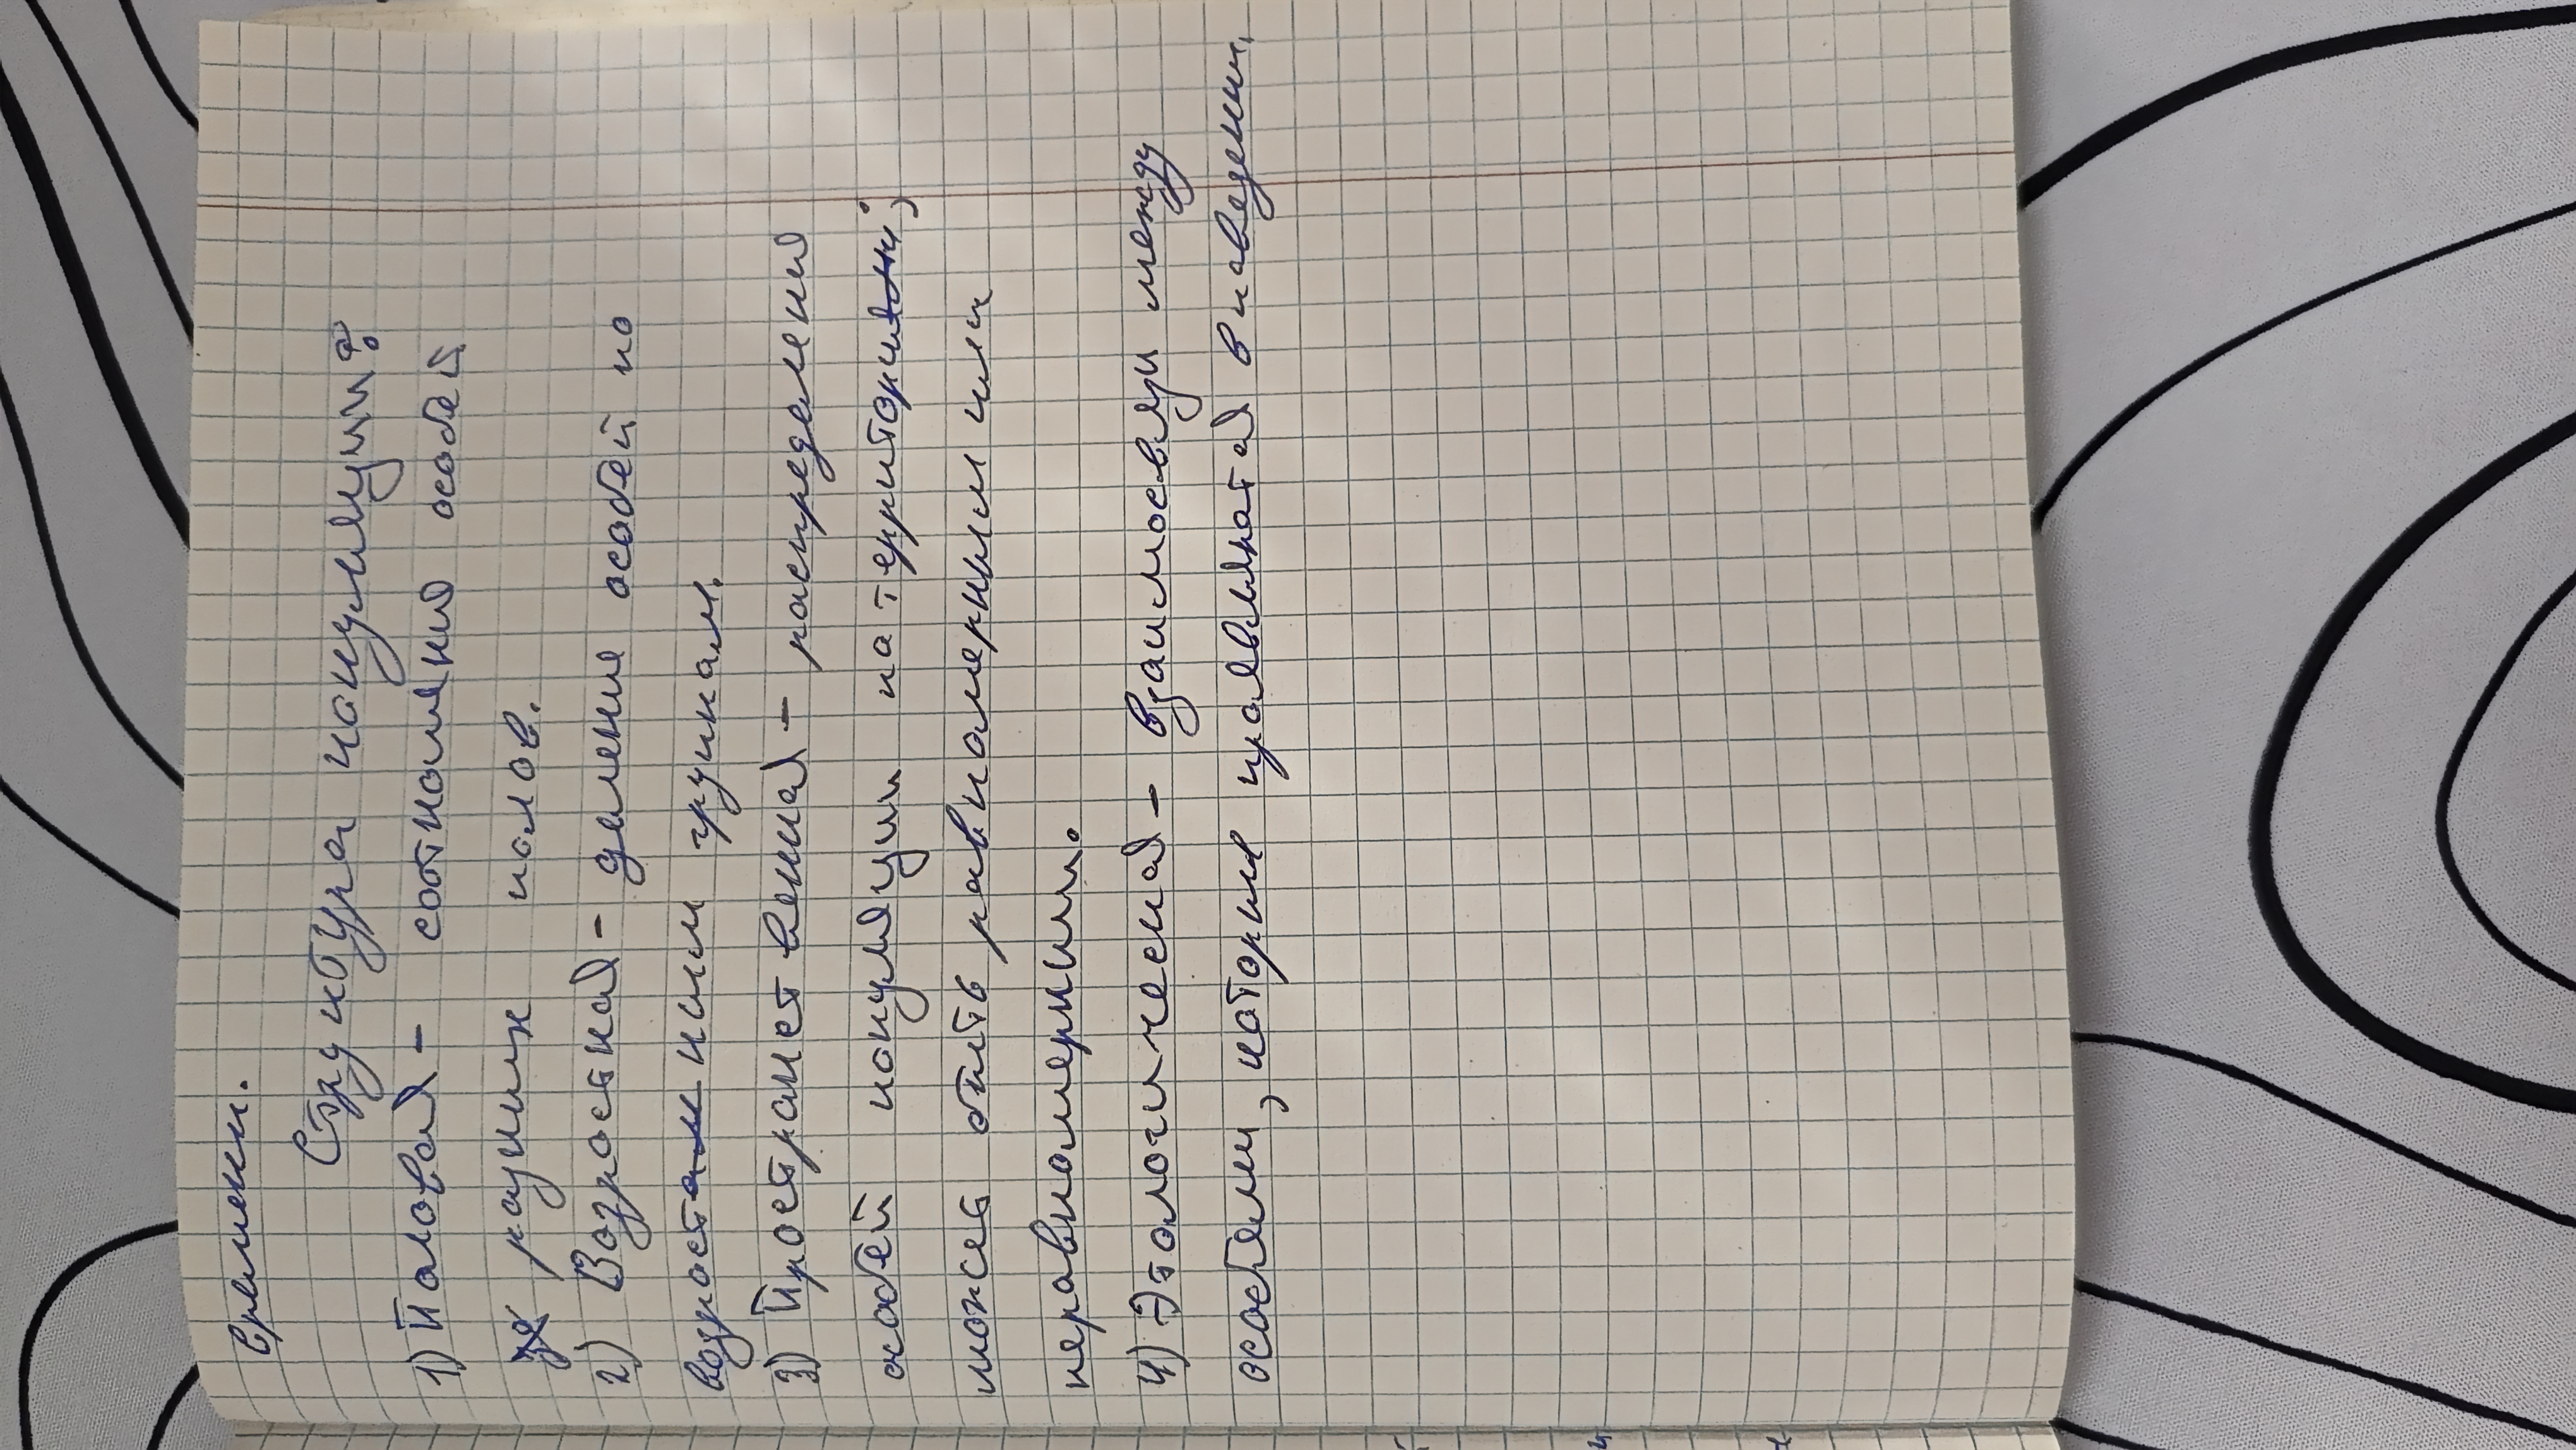 времени.
Структура популяции:
1) Половая - соотношение особей
разных полов.
2) Возрастная - деление особей по
возрастным группам.
3) Пространственная - распределение
особей популяции на территории;
может быть равномерным или
неравномерным.
4) Этологическая - взаимосвязи между
особями, которые проявляются в поведении.